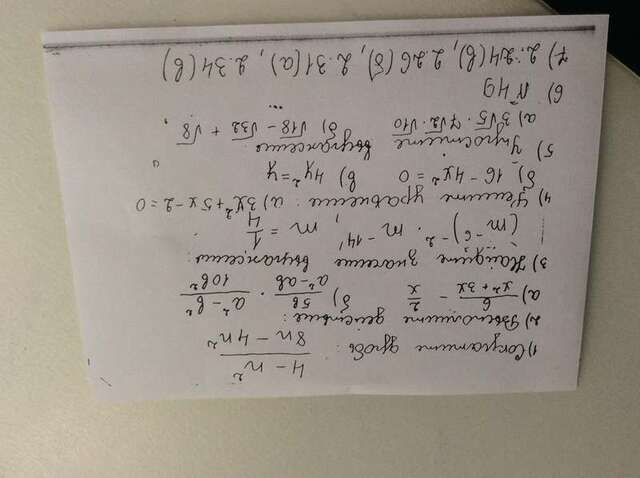 1) Сократите дробь: (4 - n²)/(8n - 4n²)
2) Выполните действие:
а) 6/(x² + 3x) - 2/x б) 5b/(a² - ab) · (a² - b²)/(10b²)
3) Найдите значение выражения:
(m⁻⁶)⁻² · m⁻¹⁴, m = 1/4
4) Решите уравнение: а) 3x² + 5x - 2 = 0
б) 16 - 4x² = 0 в) 4y² = y
5) Упростите выражение:
а) 3√5 · 4√2 · √10 б) √18 - √32 + √8
6) № 49
7) 2.24(в), 2.26(б), 2.31(а), 2.34(в)